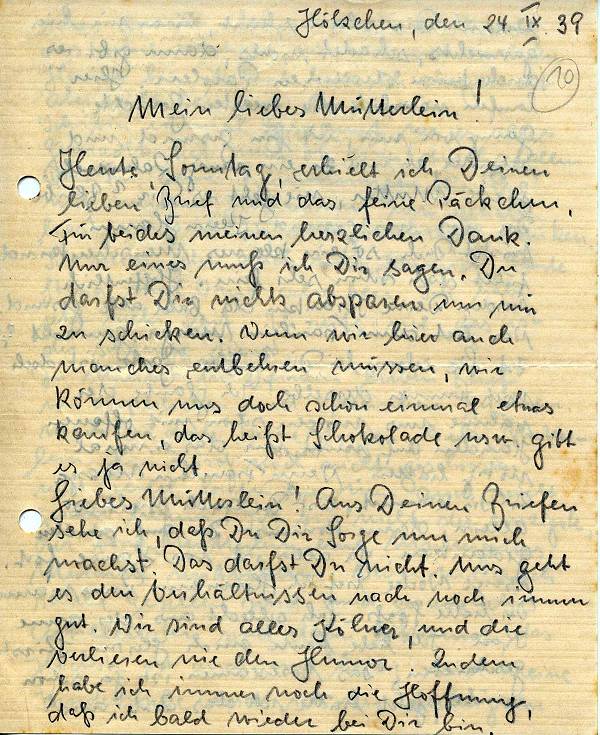 Hölschen, den 24 IX. 39
10
Mein liebes Mütterlein!
Heute, Sonntag, erhielt ich Deinen
lieben Brief und das feine Päckchen,
Für beides meinen herzlichen Dank.
Nur eines muß ich Dir sagen. Du
darfst Dir nichts absparen um mir
zu schicken. Wenn wir hier auch
manches entbehren müssen, wir
können uns doch schon einmal etwas
kaufen, das heißt Schokolade usw. gibt
es ja nicht.
Liebes Mütterlein! Aus Deinen Briefen
sehe ich, daß Du Dir Sorge um mich
machst. Das darfst Du nicht. Uns geht
es den Verhältnissen nach noch immer
gut. Wir sind alles Kölner, und die
verlieren nie den Humor. Zudem
habe ich immer noch die Hoffnung,
daß ich bald wieder bei Dir bin.